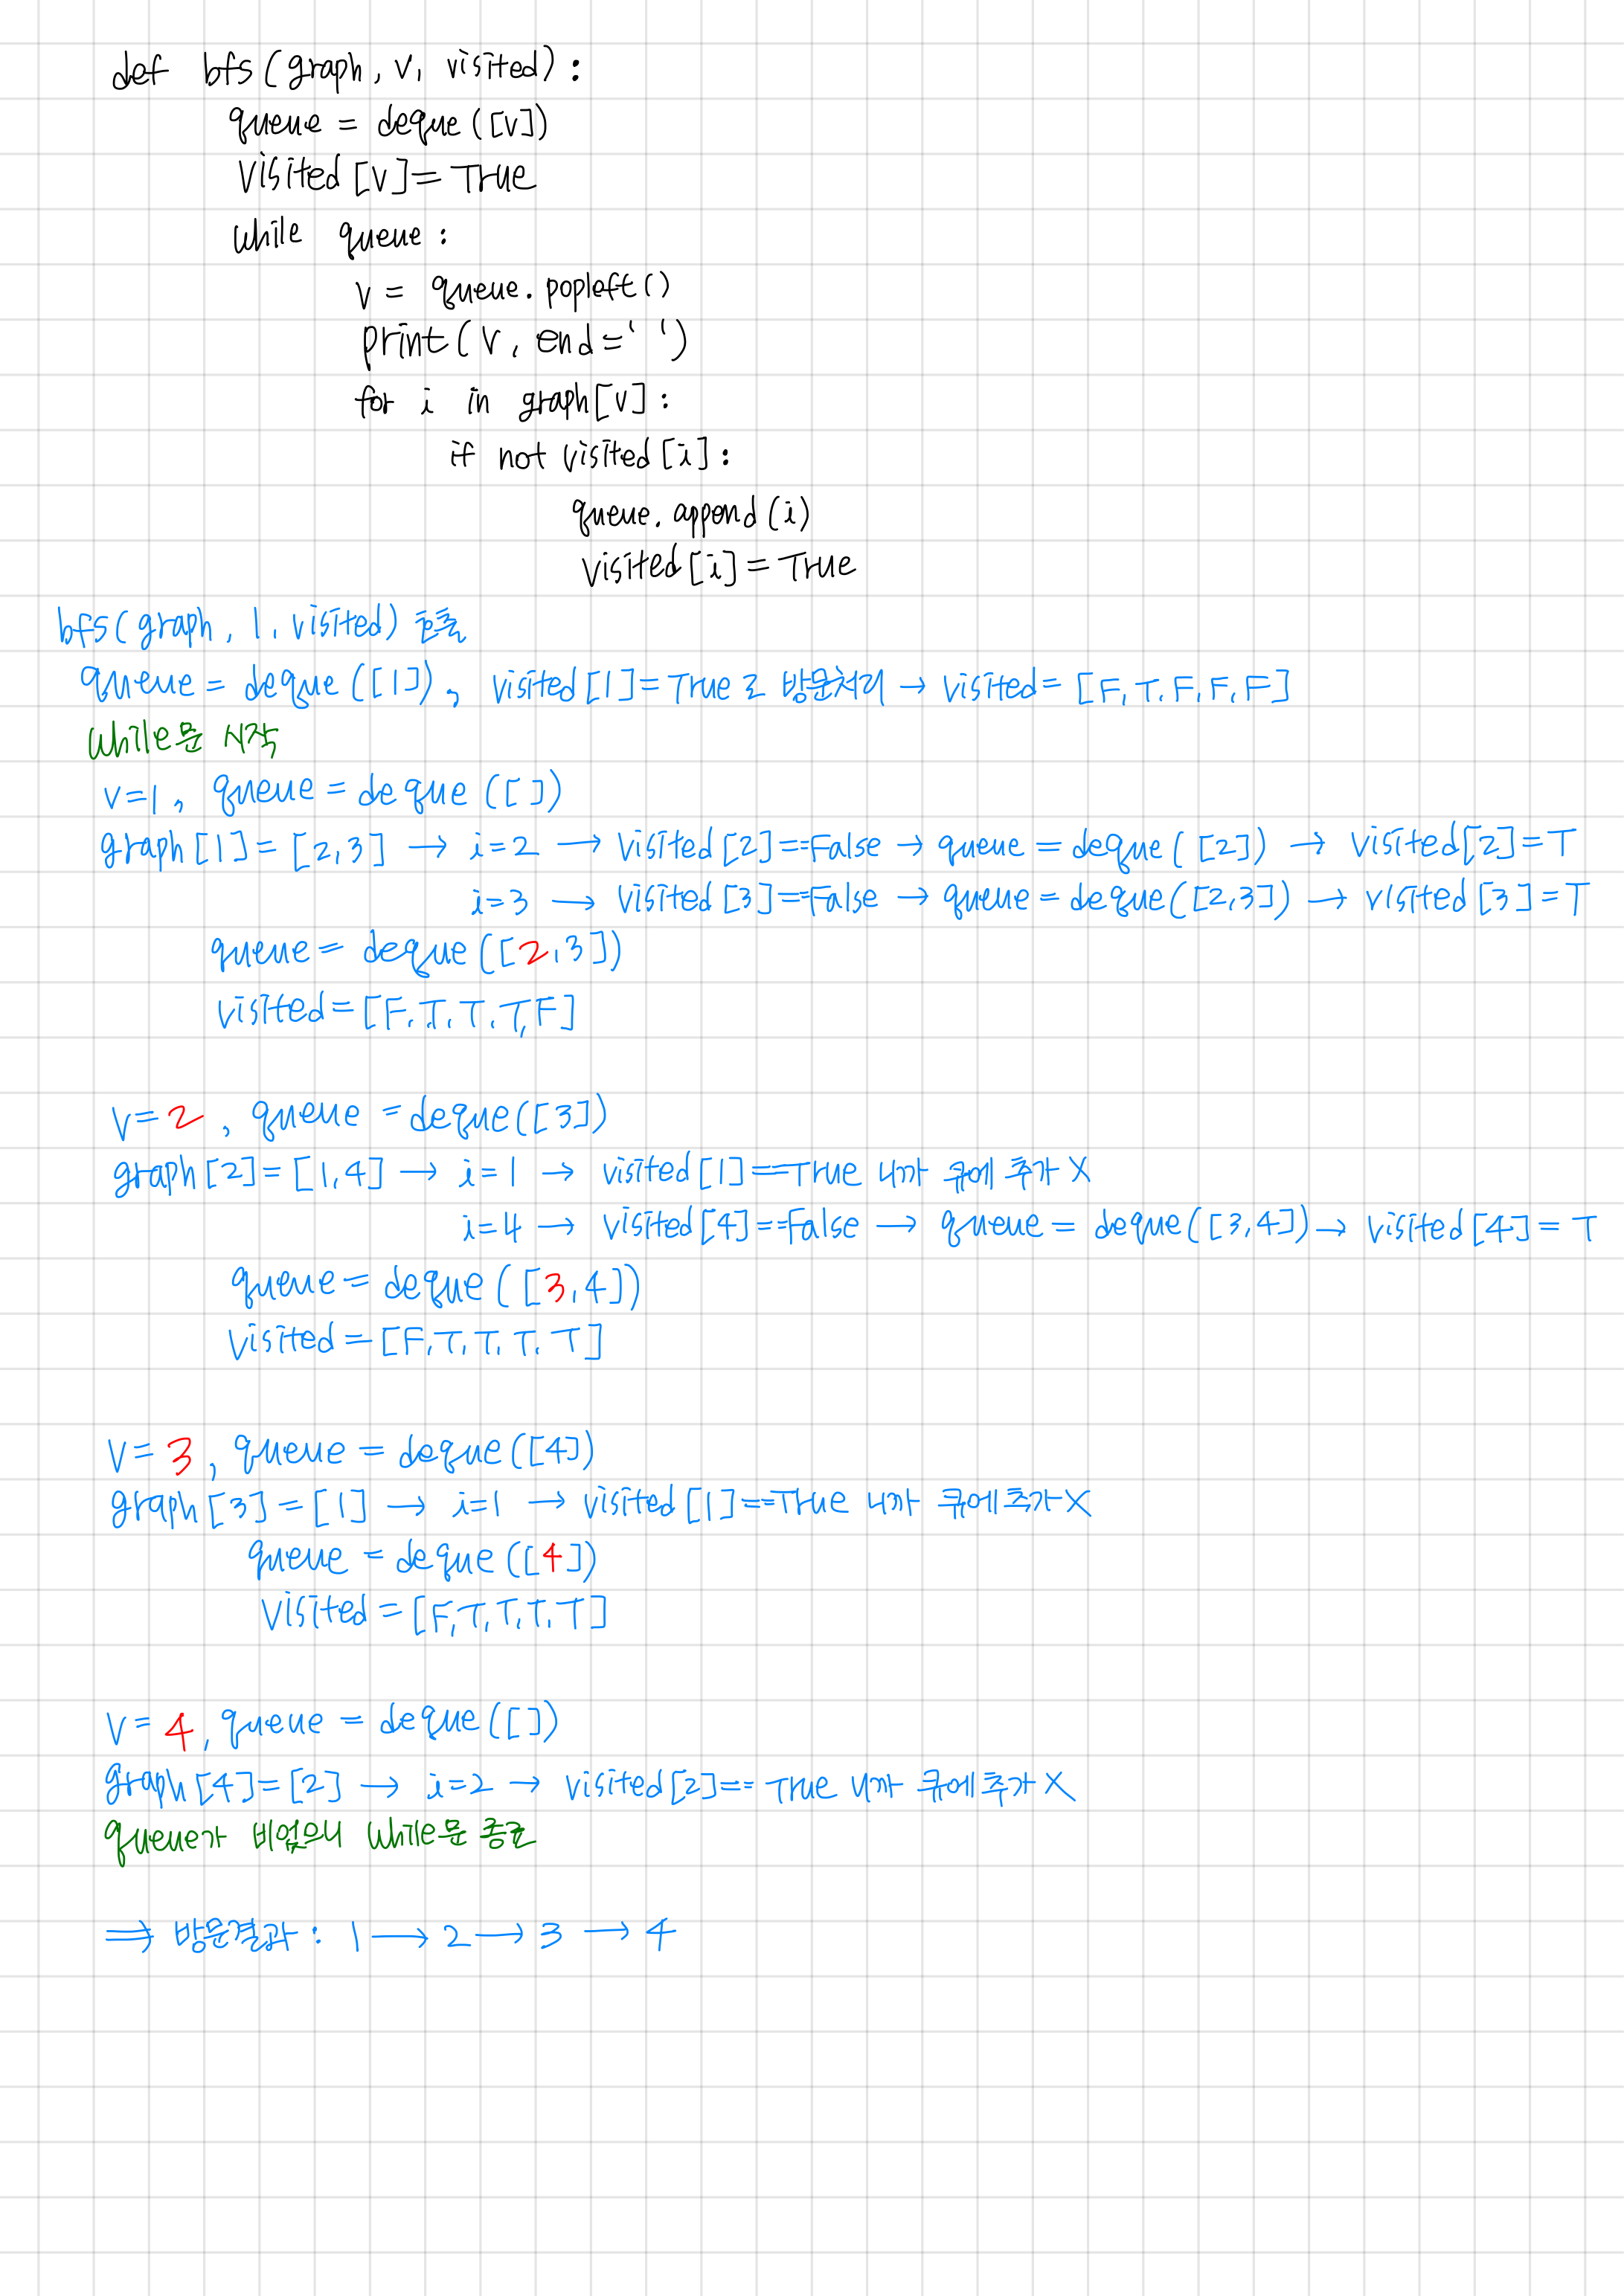 def bfs(graph, v, visited):
queue = deque([v])
visited[v] = True
while queue:
v = queue.popleft()
print(v, end=' ')
for i in graph[v]:
if not visited[i]:
queue.append(i)
visited[i] = True
bfs(graph, 1, visited) 호출
queue = deque([1]), visited[1]=True 로 방문처리 → visited = [F, T, F, F, F]
while문 시작
v=1, queue = deque([])
graph[1] = [2,3] → i=2 → visited[2]==False → queue = deque([2]) → visited[2]=T
i=3 → visited[3]==False → queue = deque([2,3]) → visited[3]=T
queue = deque([2,3])
visited=[F, T, T, T, F]
v=2, queue = deque([3])
graph[2]=[1,4] → i=1 → visited[1]==True 니까 큐에 추가 X
i=4 → visited[4]==False → queue = deque([3,4]) → visited[4] = T
queue = deque([3,4])
visited = [F, T, T, T, T]
v=3, queue = deque([4])
graph[3] = [1] → i=1 → visited[1]==True 니까 큐에 추가 X
queue = deque([4])
visited = [F, T, T, T, T]
v=4, queue = deque([])
graph[4]=[2] → i=2 → visited[2]== True 니까 큐에 추가 X
queue가 비었으니 while문 종료
⇒ 방문결과 : 1 → 2 → 3 → 4